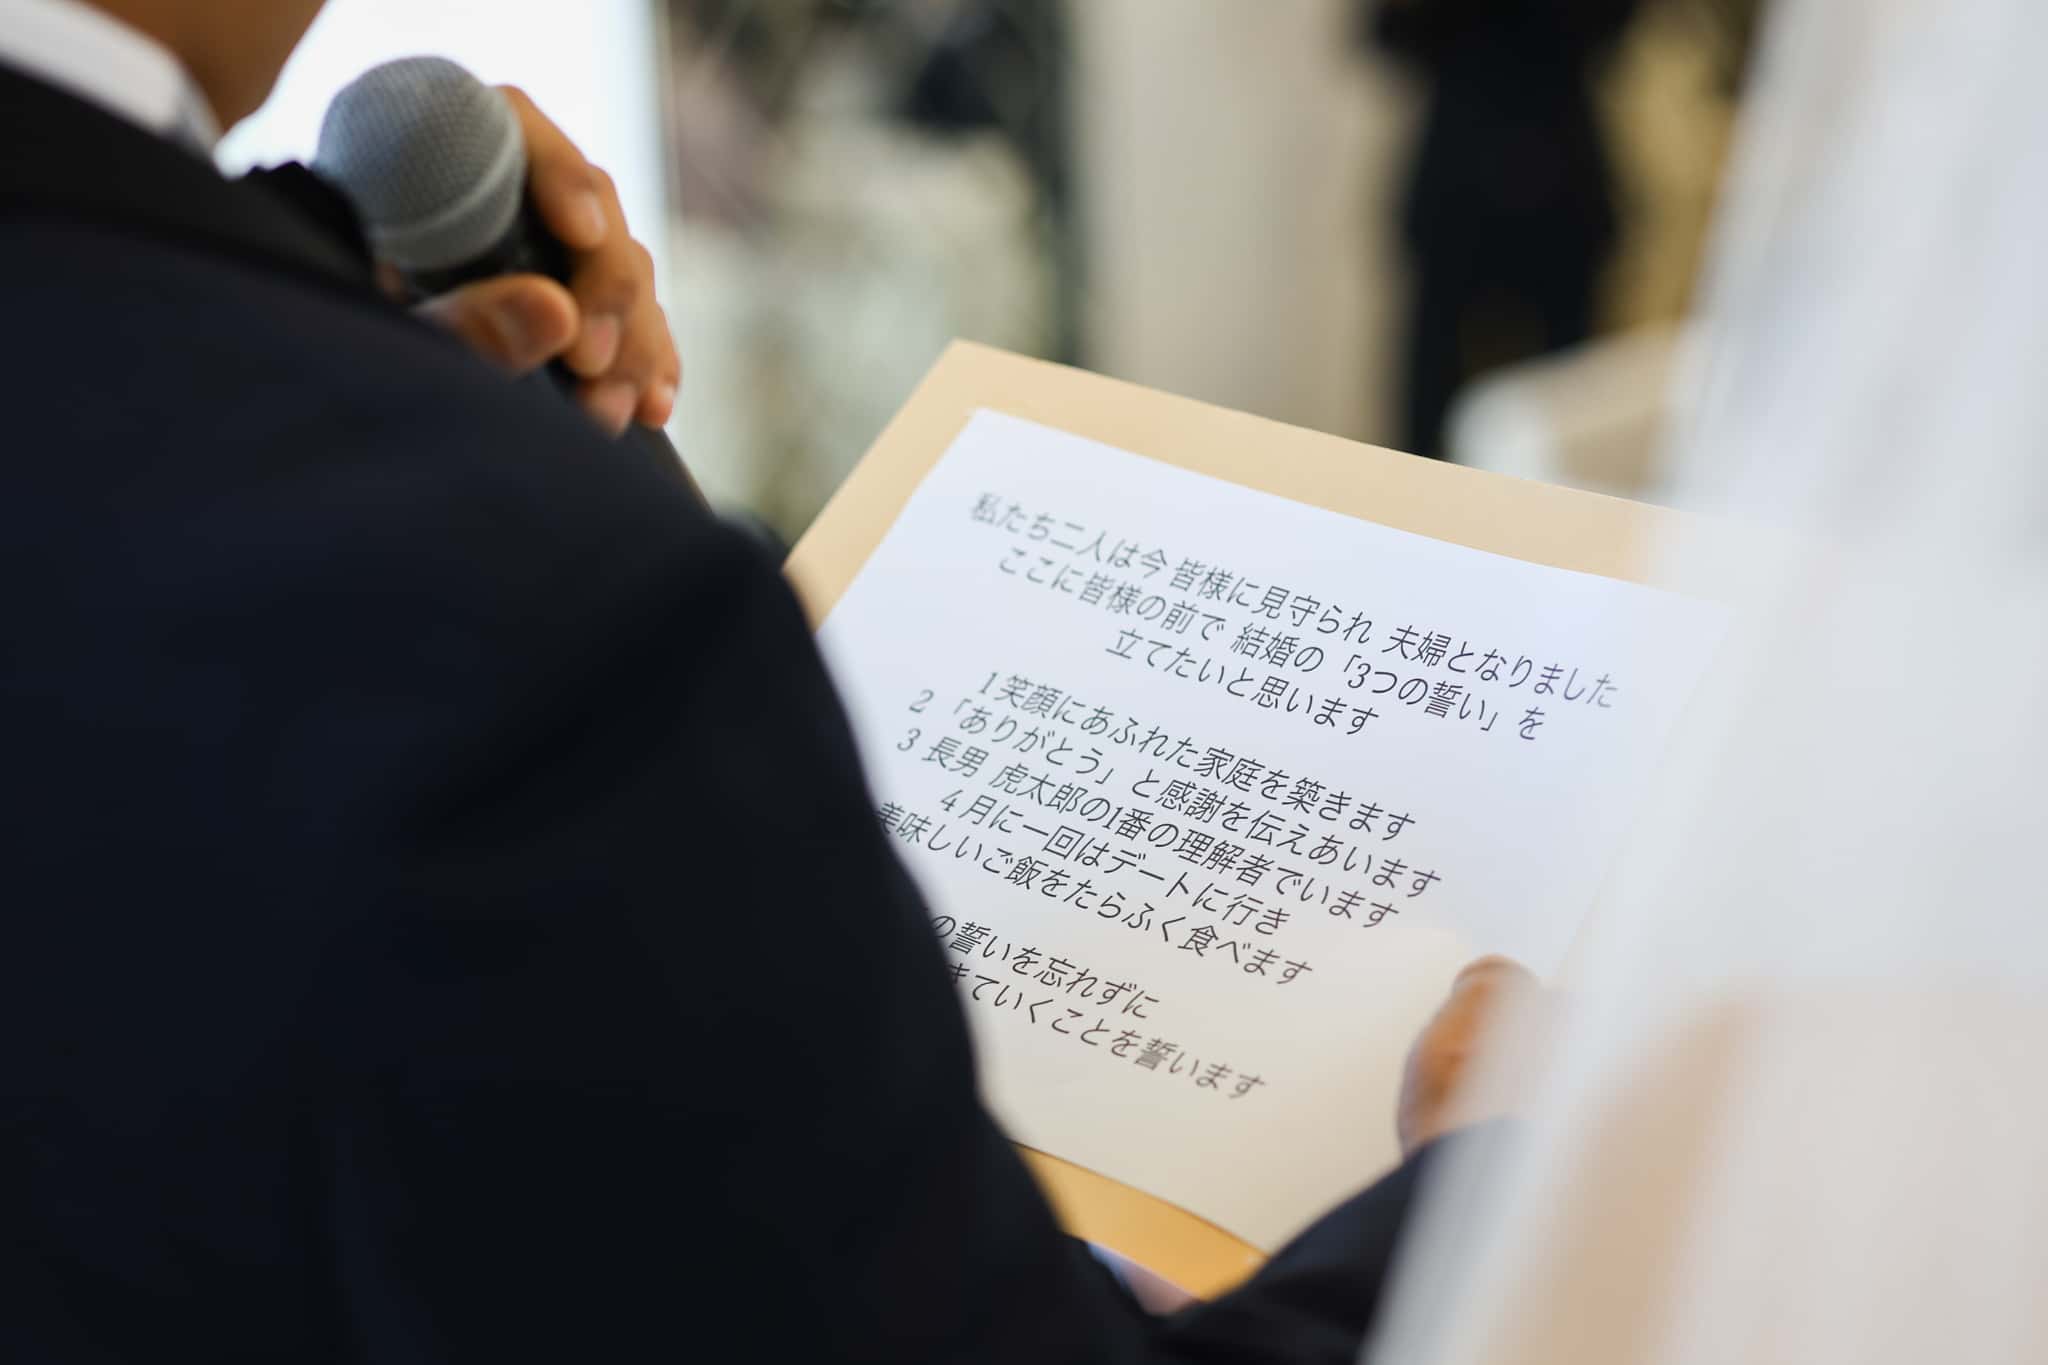 私たち二人は今 皆様に見守られ 夫婦となりました
ここに皆様の前で 結婚の「3つの誓い」を
立てたいと思います
1 笑顔にあふれた家庭を築きます
2 「ありがとう」と感謝を伝えあいます
3 長男 虎太郎の1番の理解者でいます
4 月に一回はデートに行き
美味しいご飯をたらふく食べます
の誓いを忘れずに
きていくことを誓います